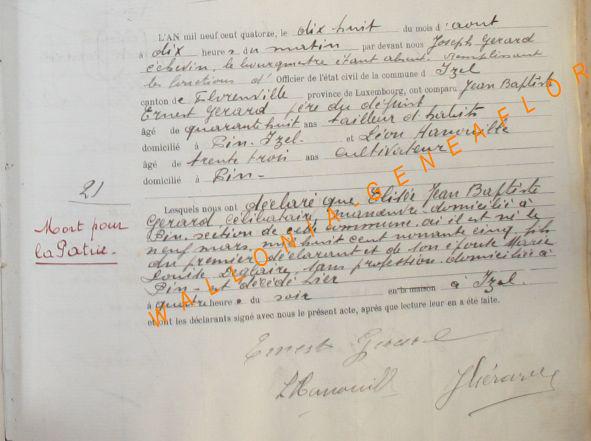 L'AN mil neuf cent quatorze, le dix huit du mois d'août
à dix heures du matin par devant nous Joseph Gerard
échevin, le bourgmestre étant absent remplissant
les fonctions d' Officier de l'état civil de la commune d Izel
canton de Florenville province de Luxembourg, ont comparu Jean Baptiste
Ernest Gerard père du défunt
âgé de quarante huit ans tailleur d'habits
domicilié à Pin-Izel et Léon
âgé de trente trois ans cultivateur
domicilié à Pin
21
Mort pour
la Patrie.
Lesquels nous ont déclaré que Elisée Jean Baptiste
Gerard, célibataire, manœuvre domicilié à
Pin, section de cette commune, où il est né le
neuf mars, mil huit cent nonante cinq, fils
du premier déclarant et de son épouse Marie
Louise sans profession domiciliée à
Pin est décédé hier
à quatre heures du soir en la maison à Izel
et ont les déclarants signé avec nous le présent acte, après que lecture leur en a été faite.
Ernest Gerard
JGérard
WALLONIAGENEAFLOR